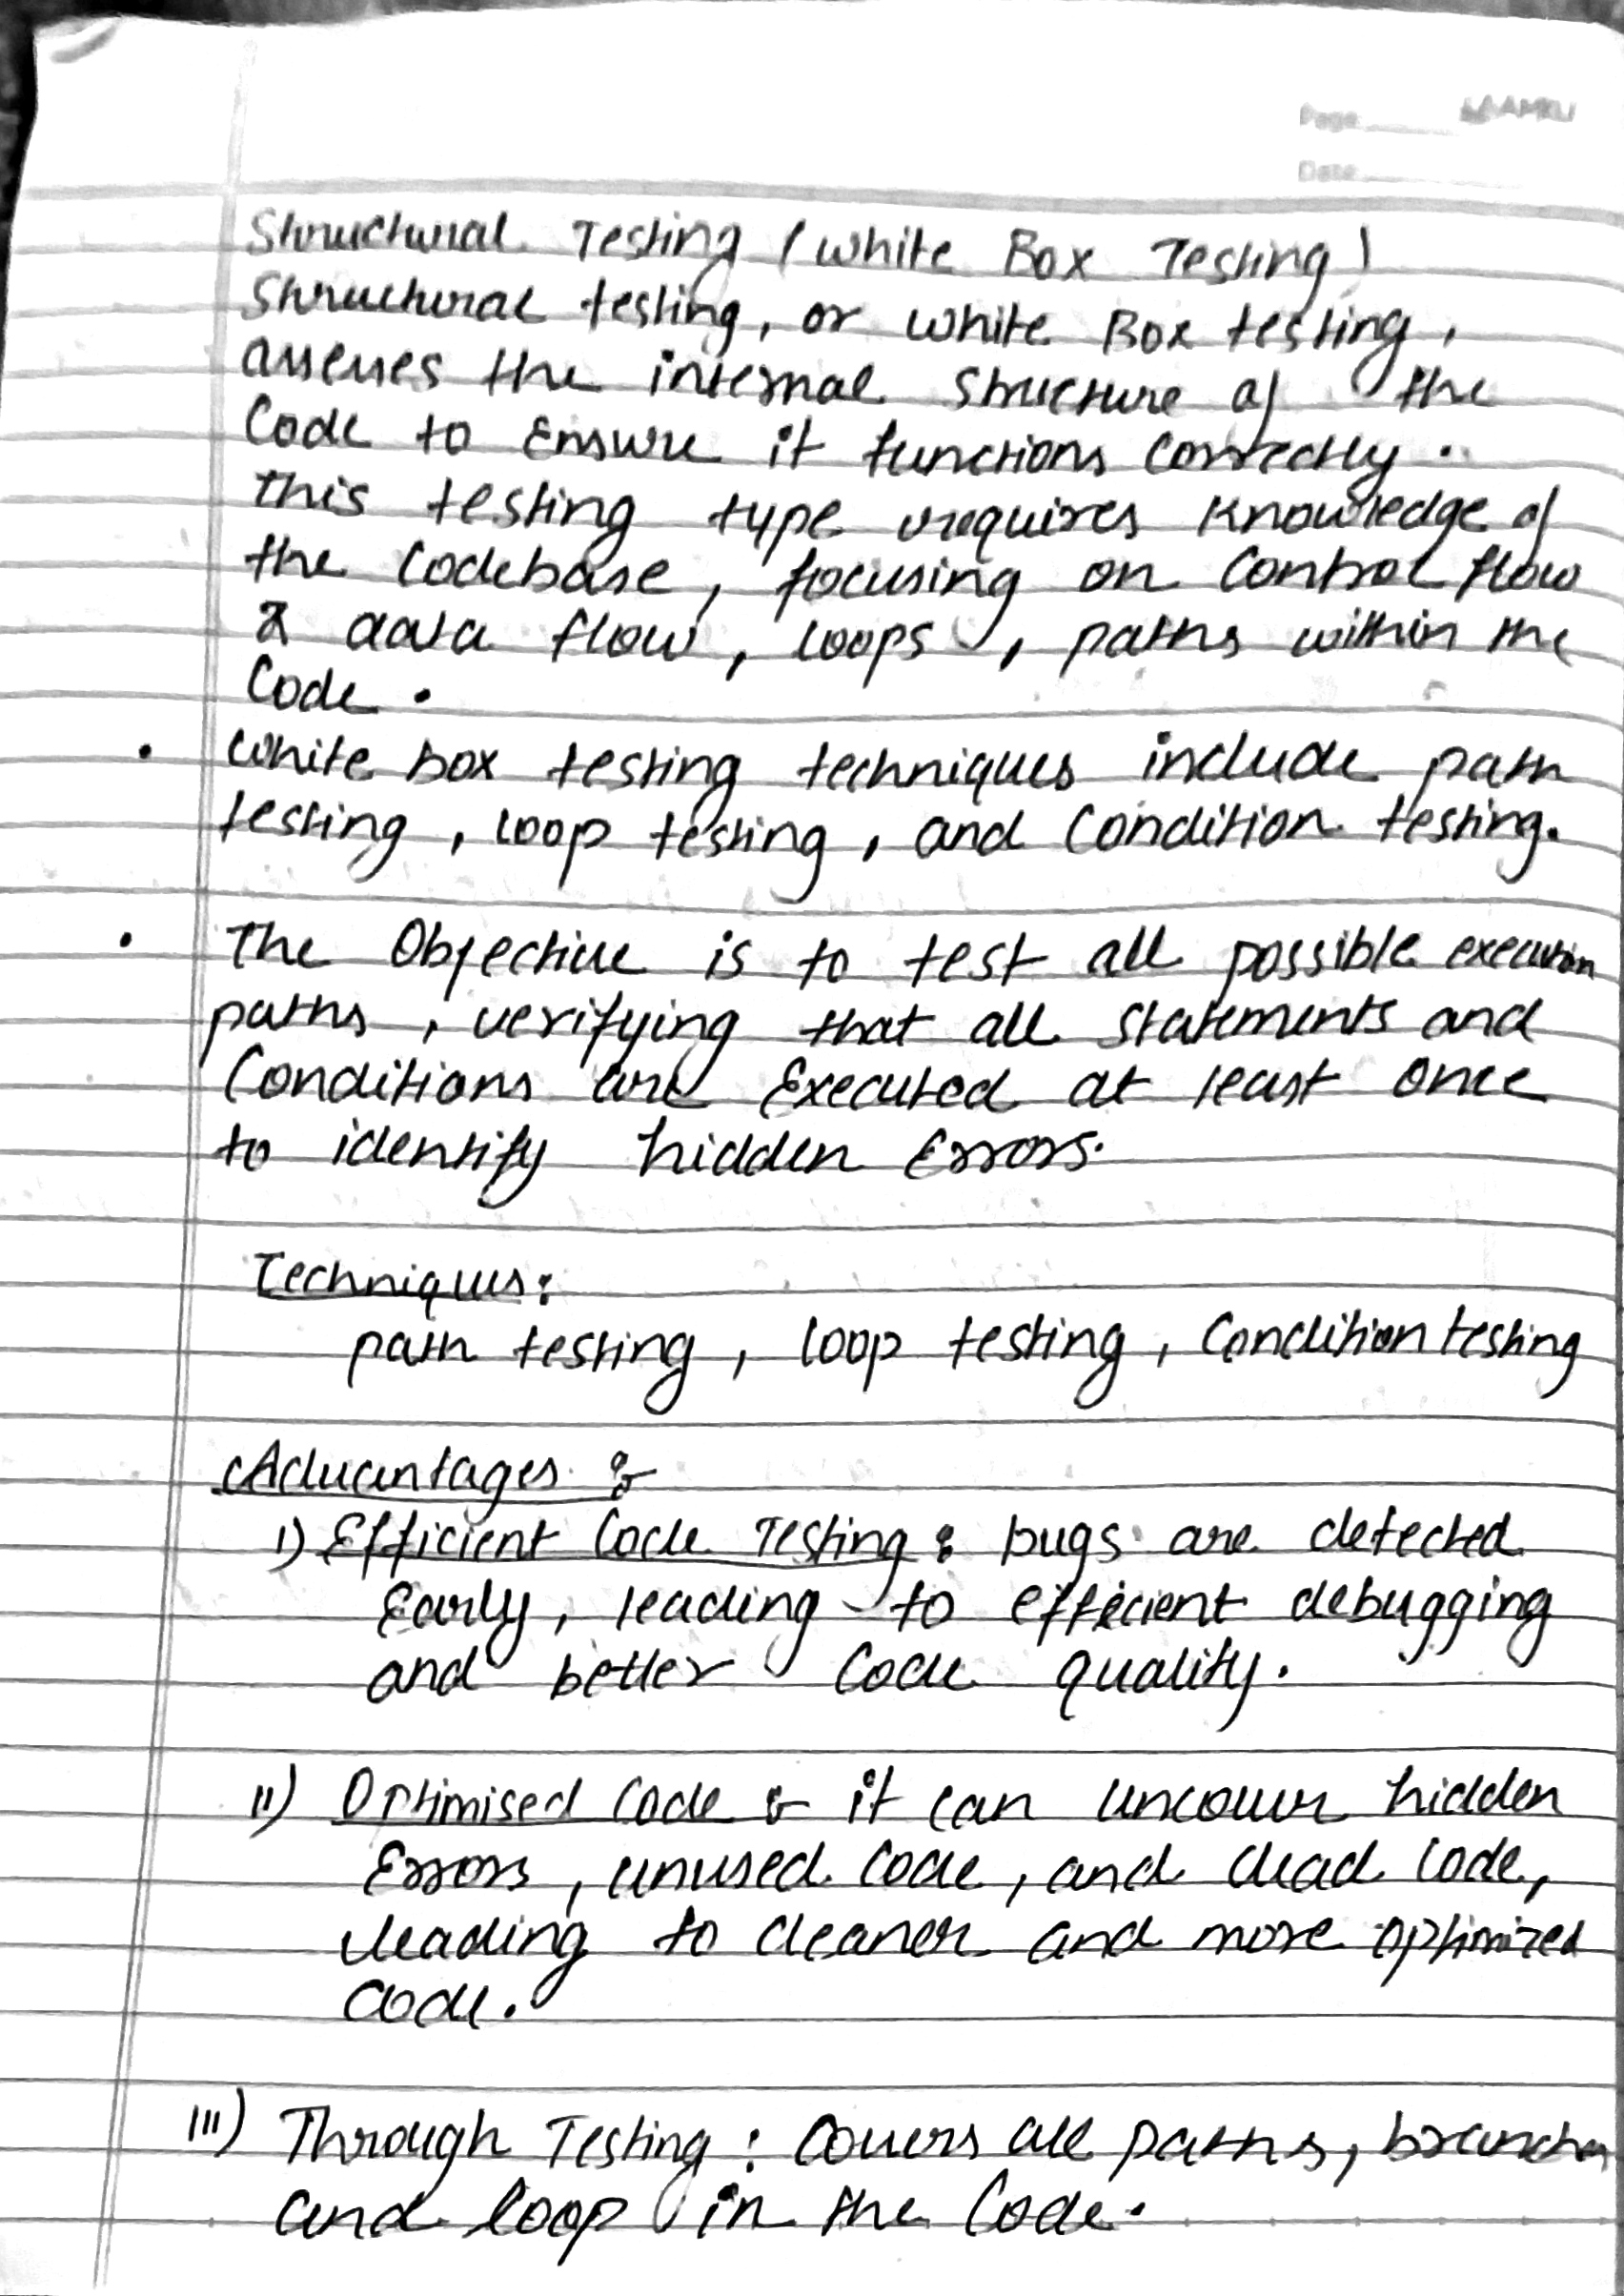 Page
Date
Structural Testing (White Box Testing)
Structural testing, or White Box testing,
assesses the internal structure of the
Code to Ensure it functions Correctly.
This testing type requires Knowledge of
the Codebase, focusing on Control flow
& data flow, loops, paths within the
Code.
• White box testing techniques include path
testing, loop testing, and Condition testing.
• The Objective is to test all possible execution
paths, verifying that all Statements and
Conditions are Executed at least once
to identify hidden Errors.
Techniques:
path testing, loop testing, Condition testing
Advantages :-
i) Efficient Code Testing : bugs are detected
Early, leading to efficient debugging
and better Code quality.
ii) Optimised Code :- it can uncover hidden
Errors, unused Code, and dead Code,
leading to cleaner and more optimized
Code.
iii) Through Testing : Covers all paths, branches
and loop in the Code.